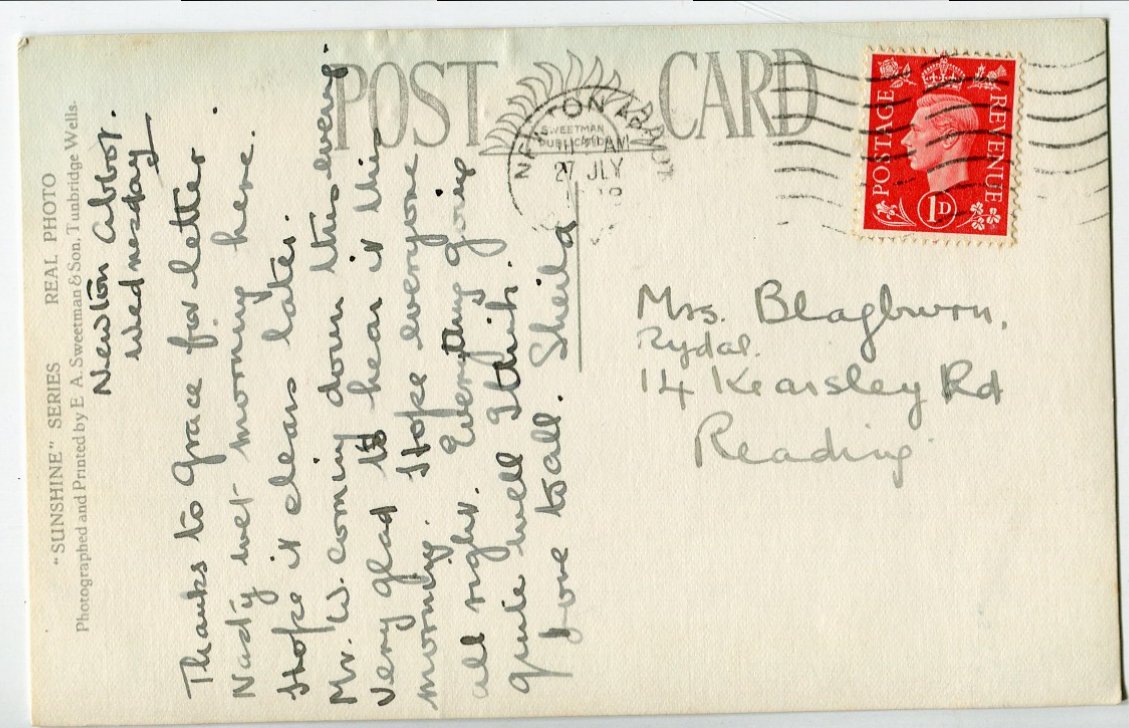 "SUNSHINE" SERIES REAL PHOTO
Photographed and Printed by E. A. Sweetman & Son, Tunbridge Wells.
POST CARD
SWEETMAN
NEWTON ABBOT
AM
27 JLY
POSTAGE REVENUE
1D
Newton Abbot.
Wednesday
Thanks to Grace for letter.
Nasty wet morning here.
Hope it clears later.
Mr. W. coming down this evening.
Very glad to hear it this
morning. Hope everyone
all right. Everything going
quite well I think.
Love to all. Sheila
Mrs. Blagburn,
Rydal.
14 Kearsley Rd
Reading